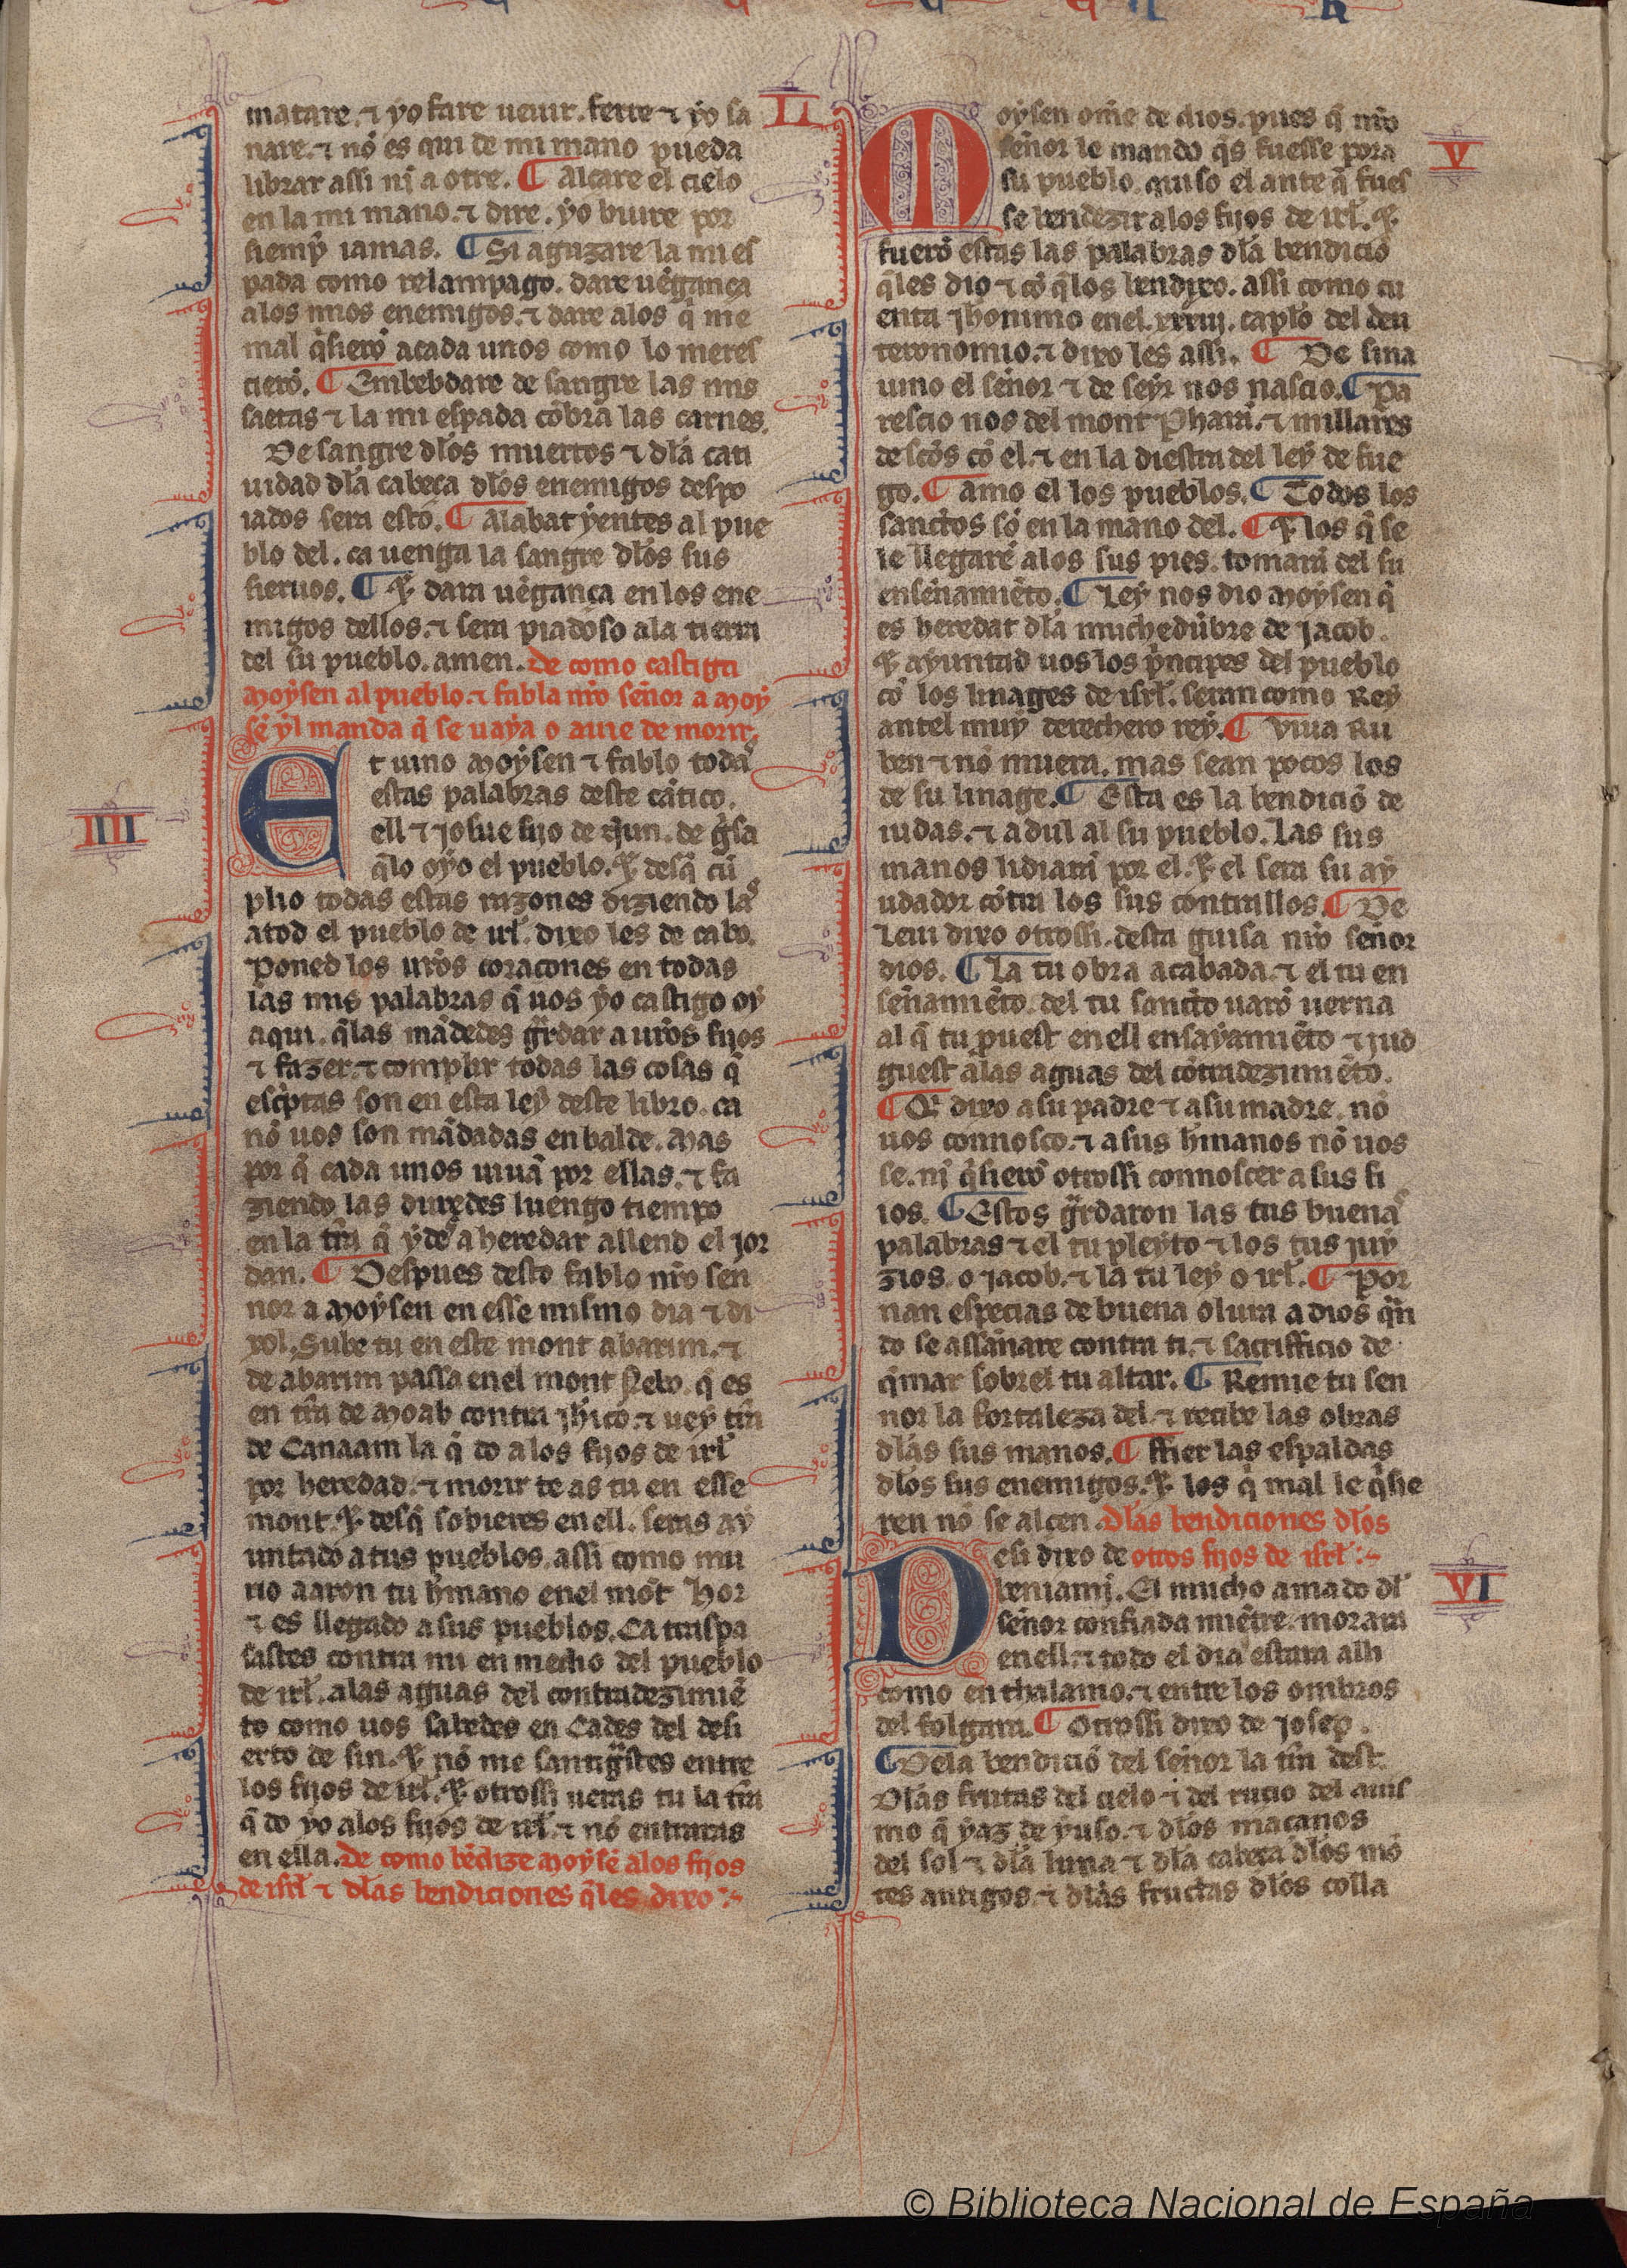 matare. ⁊ yo fare ueuir. ferre ⁊ yo sa
nare. ⁊ nõ es qui de mi mano pueda
librar assi nj a otre. ¶ Alçare el cielo
en la mi mano. ⁊ dire. yo biuire por
siemp̃ iamas. ¶ Si aguzare la mi es
pada como relampago. dare uẽgança
alos mios enemigos. ⁊ dare alos q̃ me
mal q̃sierõ acada unos como lo meres
cierõ. ¶ Embebdare de sangre las mis
saetas ⁊ la mi espada cõbra las carnes.
De sangre dłos muertos ⁊ dła cati
uidad dła cabeça dłos enemigos despo
iados sera esto. ¶ Alabat yentes al pue
blo del. ca uenga la sangre dłos sus
sieruos. ¶ ⁊ dara uẽgança en los ene
migos dellos. ⁊ sera piadoso ala tierra
del su pueblo. amen. De como castiga
Moysen al pueblo. ⁊ fabla nr̃o señor a Moy
sẽ yl manda q̃ se uaya o auie de morir.
IIII
Et uino Moysen ⁊ fablo todas
estas palabras deste cãtico.
ell ⁊ Josue fijo de Nun. de g̃sa
q̃lo oyo el pueblo. ⁊ desq̃ cũ
plio todas estas razones diziendo las
atod el pueblo de irł. dixo les de cabo.
Poned los ur̃os coraçones en todas
las mis palabras q̃ uos yo castigo oy
aqui. q̃las mãdedes gr̃dar a ur̃os fijos
⁊ fazer. ⁊ complir todas las cosas q̃
esc̃ptas son en esta ley deste libro. ca
nõ uos son mãdadas en balde. Mas
por q̃ cada unos uiuã por ellas. ⁊ fa
ziendo las duredes luengo tiempo
en la tr̃ra q̃ ydes a heredar allend el Jor
dan. ¶ Despues desto fablo nr̃o sen
nor a Moysen en esse mismo dia ⁊ di
xol. Sube tu en este mont abarim. ⁊
de abarim passa en el mont Nebo. q̃ es
en tr̃ra de Moab contra Jhico. ⁊ uey tr̃ra
de Canaam la q̃ do a los fijos de irł
por heredad. ⁊ morir te as tu en esse
mont. ⁊ desq̃ sobieres en ell. seras ay
untado a tus pueblos. assi como mu
rio aaron tu h̃mano en el mõt Hor
⁊ es llegado a sus pueblos. Ca traspa
sastes contra mi en medio del pueblo
de irł. alas aguas del contradezimiẽ
to como uos sabedes en Cades del desi
erto de sin. ⁊ nõ me santig̃stes entre
los fijos de irł. ⁊ otrossi ueras tu la tr̃ra
q̃ do yo alos fijos de irł. ⁊ nõ entraras
en ella. De como bẽdize Moysẽ alos fijos
de isrł ⁊ dłas bendiciones q̃les dixo:~
LI
V
Moysen om̃e de dios. pues q̃ nr̃o
señor le mando q̃s fuesse pora
su pueblo. quiso el ante q̃ fues
se bendezir alos fijos de irł. ⁊
fuerõ estas las palabras dła bendiciõ
q̃les dio ⁊ cõ q̃los bendixo. assi como cu
enta Jhonimo en el. xxxiij. capło del deu
teronomio. ⁊ dixo les assi. ¶ De sina
uino el señor ⁊ de seyr nos nascio. ¶ Pa
rescio nos del mont Pharã. ⁊ millares
de sctõs cõ el. ⁊ en la diestra del ley de fue
go. ¶ Amo el los pueblos. ¶ Todos los
sanctos sõ en la mano del. ¶ ⁊ los q̃ se
le llegarẽ alos sus pies. tomarã del su
enseñamiẽto. ¶ Ley nos dio Moysen q̃
es heredat dła muchedũbre de Jacob.
⁊ ayuntad uos los p̃ncipes del pueblo
cõ los linages de isrł. seran como Rey
antel muy derechero rey. ¶ Viua Ru
ben ⁊ nõ muera. mas sean pocos los
de su linage. ¶ Esta es la bendiciõ de
iudas. ⁊ adul al su pueblo. Las sus
manos lidiarã por el. ⁊ el sera su ay
udador cõtra los sus contrallos. ¶ De
Leui dixo otrossi. desta guisa nr̃o señor
dios. ¶ La tu obra acabada. ⁊ el tu en
señamiẽto. del tu sancto uarõ uerna
al q̃ tu puest en ell ensayamiẽto ⁊ jud
guest alas aguas del cõtradezimiẽto.
¶ Q̃ dixo a su padre ⁊ a su madre. nõ
uos connosco. ⁊ a sus h̃manos nõ uos
se. nj q̃sierõ otrossi connoscer a sus fi
ios. ¶ Estos gr̃daron las tus buenas
palabras ⁊ el tu pleyto ⁊ los tus juy
zios. o Jacob. ⁊ la tu ley o irł. ¶ Por
nan especias de buena olura a dios q̃n
do se assañare contra ti. ⁊ sacrifficio de
q̃mar sobrel tu altar. ¶ Remie tu sen
nor la fortaleza del. ⁊ recibe las obras
dłas sus manos. ¶ Fier las espaldas
dłos sus enemigos. ⁊ los q̃ mal le q̃sie
ren nõ se alcen. Dłas bendiciones dłos
otros fijos de isrł:~
VI
Desi dixo de
beniamj. El mucho amado dł
señor confiada miẽtre. morara
en ell. ⁊ todo el dia estara alli
como en thalamo. ⁊ entre los ombros
del folgara. ¶ Otrossi dixo de Josep.
¶ Dela bendiciõ del señor la tr̃ra dest.
Dlas frutas del cielo ⁊ del rucio del auis
mo q̃ yaz de yuso. ⁊ dłos maçanos
del sol ⁊ dła luna ⁊ dła cabeça dłos mõ
tes antigos. ⁊ dłas fructas dłos colla
© Biblioteca Nacional de España